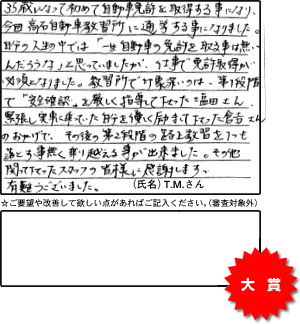 35歳になって初めて自動車免許を取得する事になり、
今回高石自動車教習所に通学する事になりました。
自分の人生の中では「一生自動車の免許を取る事は無い
んだろうな」と思っていましたが、仕事で免許取得が
必須となりました。教習所で印象深いのは、第1段階
で"安全確認"を厳しく指導して下さった富田さん、
緊張し実車に乗った自分を優しく励まして下さった倉吉さん
のおかげで、その後の第2段階の路上教習を1つも
落とす事無く乗り越える事が出来ました。その他
関って下さったスタッフの皆様に感謝します。
有難うございました。
(氏名) T.M.さん
☆ご要望や改善して欲しい点があればご記入ください。(審査対象外)
大賞